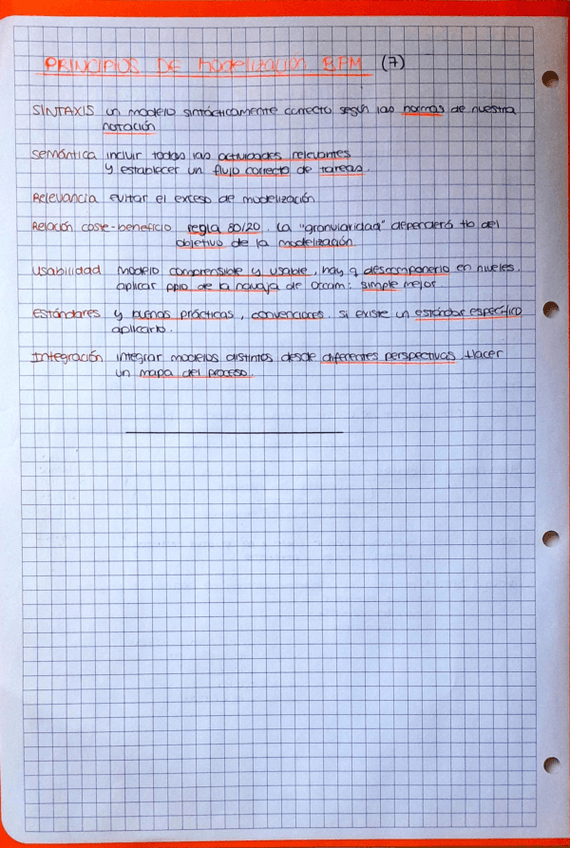 PRINCIPIOS DE modelización BPM (7)
SINTAXIS un modelo sintácticamente correcto según las normas de nuestra
notación
semántica incluir todas las actividades relevantes
y establecer un flujo correcto de tareas.
Relevancia evitar el exceso de modelización
Relación coste-beneficio regla 80/20. La "granularidad" dependerá tb del
objetivo de la modelización.
Usabilidad modelo comprensible y usable, hay q descomponerlo en niveles.
aplicar ppio de la navaja de Occam: simple mejor.
Estándares y buenas prácticas, convenciones. Si existe un estándar específico
aplicarlo.
Integración integrar modelos distintos desde diferentes perspectivas. Hacer
un mapa del proceso.